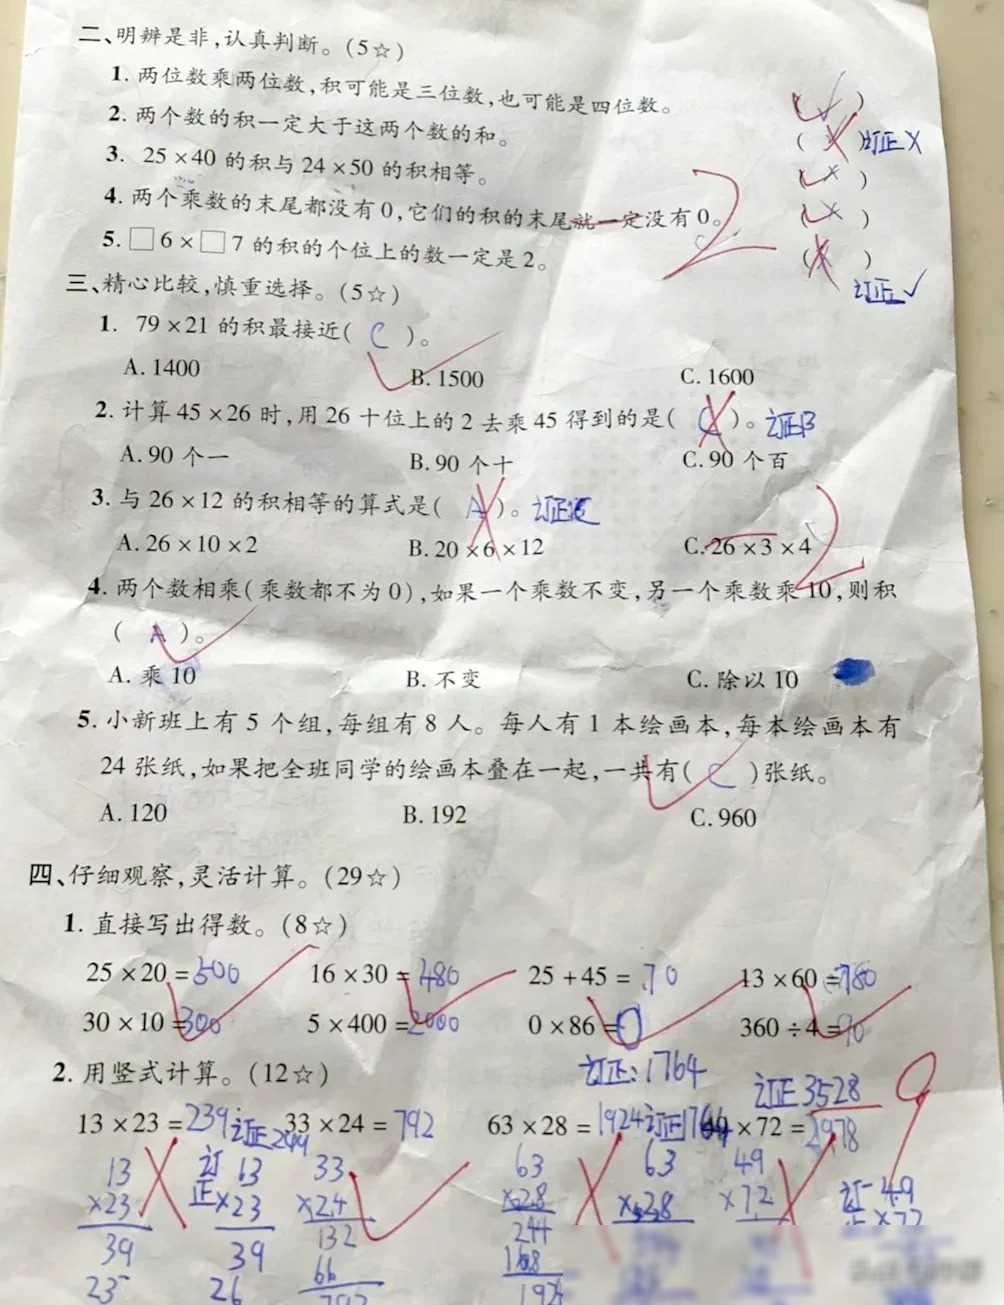 二、明辨是非,认真判断。(5☆)
1. 两位数乘两位数,积可能是三位数,也可能是四位数。 ( ✓ )
2. 两个数的积一定大于这两个数的和。 ( ) 订正 ×
3. 25×40 的积与 24×50 的积相等。 ( × )
4. 两个乘数的末尾都没有0,它们的积的末尾就一定没有0。 ( × )
5. □6×□7 的积的个位上的数一定是2。 ( )
订正 ✓
三、精心比较,慎重选择。(5☆)
1. 79×21 的积最接近( C )。
A. 1400 B. 1500 C. 1600
2. 计算 45×26 时,用 26 十位上的 2 去乘 45 得到的是( C )。订正B
A. 90 个一 B. 90 个十 C. 90 个百
3. 与 26×12 的积相等的算式是( A )。订正
A. 26×10×2 B. 20×6×12 C. 26×3×4
4. 两个数相乘(乘数都不为0),如果一个乘数不变,另一个乘数乘10,则积
( A )。
A. 乘 10 B. 不变 C. 除以 10
5. 小新班上有 5 个组,每组有 8 人。每人有 1 本绘画本,每本绘画本有
24 张纸,如果把全班同学的绘画本叠在一起,一共有( C )张纸。
A. 120 B. 192 C. 960
四、仔细观察,灵活计算。(29☆)
1. 直接写出得数。(8☆)
25×20=500 16×30=480 25+45=70 13×60=780
30×10=300 5×400=2000 0×86=0 360÷4=90
2. 用竖式计算。(12☆) 订正:1764 订正 3528
13×23=239 订正299 33×24=792 63×28=1924 订正1764 49×72=2978
13 订 13 33 63 63 49 订 49
×23 正 ×23 ×24 ×28 ×28 ×72 正 ×72
39 39 132 244
23 26 66 168
792 192